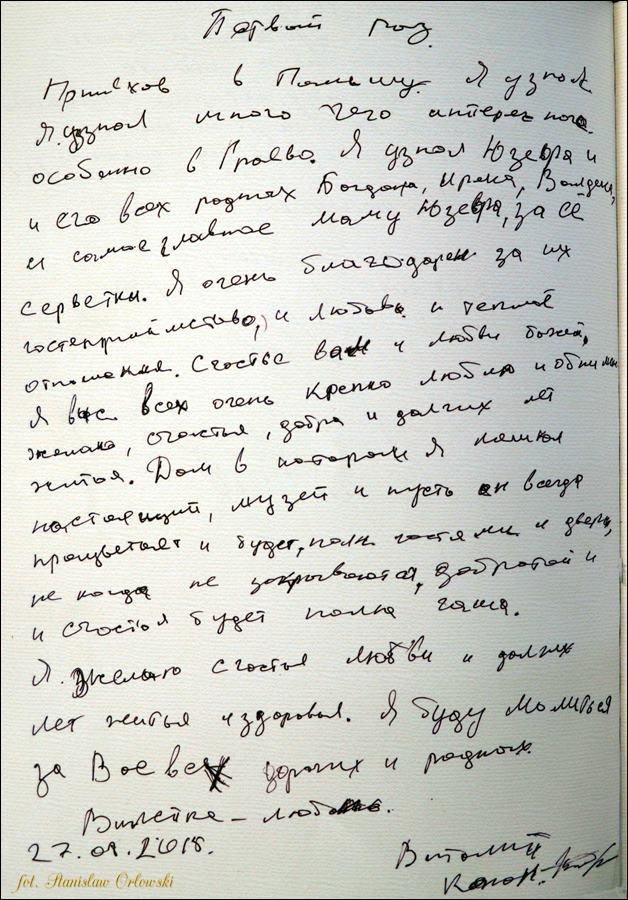 Первый раз.
Приехов в Польшу. Я узнал
Я узнал много чего интерексного.
особенно в Граево. Я узнал Юзефа и
и его всех родных Богдана, Ирека, Валдека,
и самое главное маму Юзефа, за её
серветки. Я очень благодарен за их
гостеприимство, и любовь и теплое
отношения. Счастье вам и любви божей,
Я вас всех очень крепко люблю и обнимаю
желаю, счастья, добра и долгих лет
житья. Дом в котором я
настоящий, музей и пусть он всегда
процветает и будет, полн гостями и двери,
не когда не закрываются, добротой и
и счастья будет полна чаша.
Я. Желаю счастья любви и долгих
лет житья и здоровья. Я буду молиться
за Вас всех дорогих и родных.
Вилейка – любовь.
27.09.2018.
Виталий
fot. Stanisław Orłowski